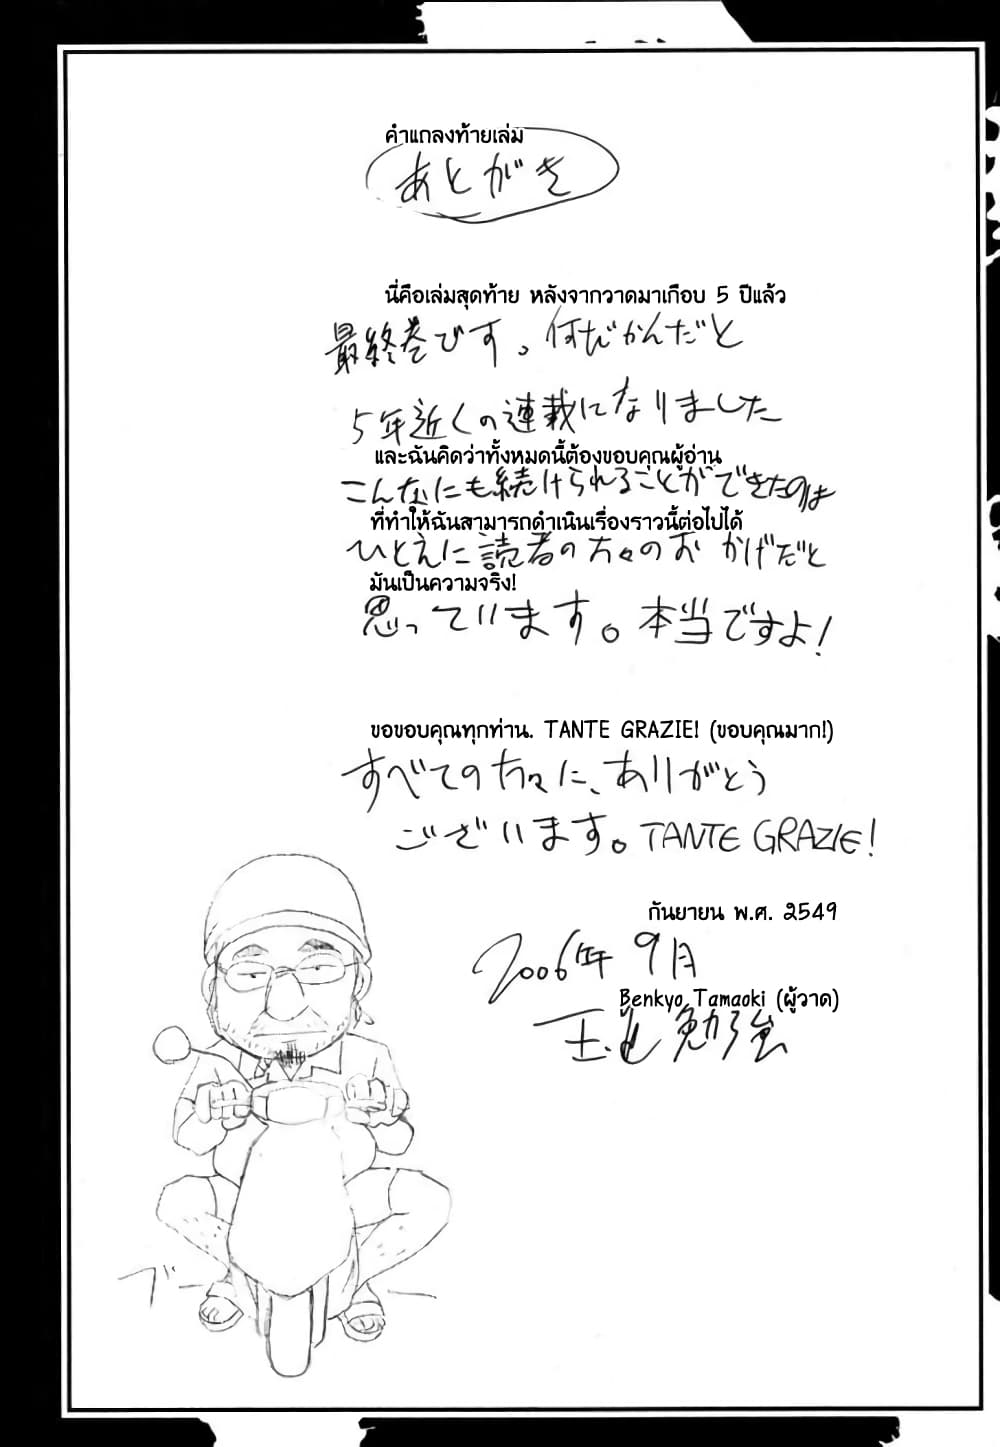 คำแถลงท้ายเล่ม
あとがき
นี่คือเล่มสุดท้าย หลังจากวาดมาเกือบ 5 ปีแล้ว
最終巻です。何だかんだと
5年近くの連載になりました
และฉันคิดว่าทั้งหมดนี้ต้องขอบคุณผู้อ่าน
こんなにも続けられることができたのは
ที่ทำให้ฉันสามารถดำเนินเรื่องราวนี้ต่อไปได้
ひとえに読者の方々のおかげだと
มันเป็นความจริง!
思っています。本当ですよ!
ขอขอบคุณทุกท่าน. TANTE GRAZIE! (ขอบคุณมาก!)
すべての方々に、ありがとう
ございます。TANTE GRAZIE!
กันยายน พ.ศ. 2549
2006年9月
Benkyo Tamaoki (ผู้วาด)
玉置勉強
ブーー